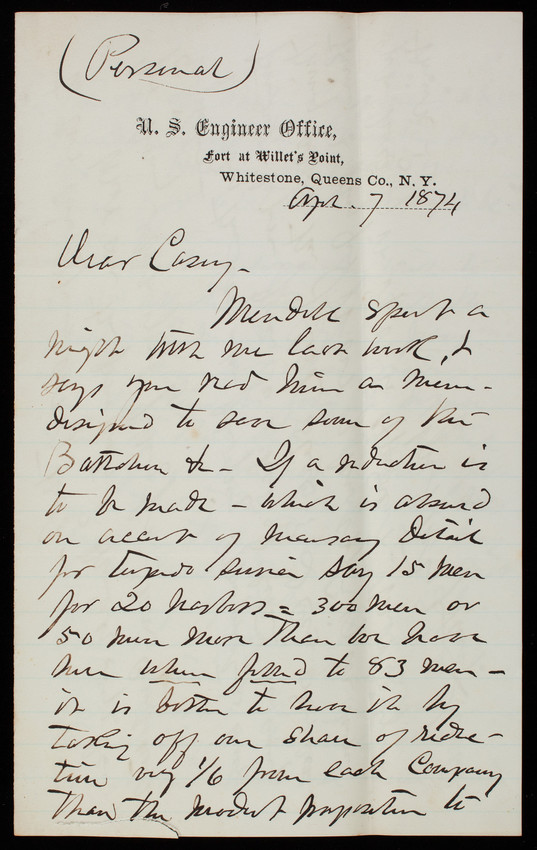 (Personal)
U. S. Engineer Office,
Fort at Willet's Point,
Whitestone, Queens Co., N. Y.
Apl. 7 1874
Dear Casey -
Mendell spent a
night with me last week, &
says you read him a mem -
designed to save some of the
Battalion &c - If a reduction is
to be made - which is absurd
on account of necessary detail
for torpedo service say 15 men
for 20 harbors = 300 men or
50 men more than we have
here when filled to 83 men -
it is better to have it by
taking off our share of reduc-
tion viz 1/6 from each Company
than the modest proposition to